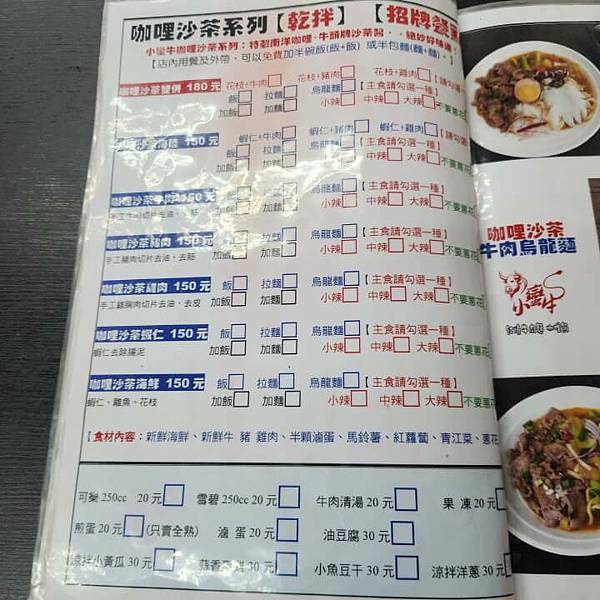 咖哩沙茶系列【乾拌】 【招牌
小蠻牛咖哩沙茶系列：特製南洋咖哩+牛頭牌沙茶醬
【店內用餐及外帶，可以免費加半碗飯(飯+飯) 或半包麵(麵+麵)。】
咖哩沙茶雙併 180 元 花枝+牛肉□ 花枝+豬肉□ 花枝+雞肉□
飯□ 拉麵□ 烏龍麵□【主食請勾選一種】
加飯□ 加麵□ 小辣□ 中辣□ 大辣□不要蔥花
150 元 蝦仁+牛肉□ 蝦仁+豬肉□ 蝦仁+雞肉□
飯□ 拉麵□ 烏龍麵□【主食請勾選一種】
加飯□ 加麵□ 小辣□ 中辣□ 大辣□不要蔥花
咖哩沙茶牛肉 飯□ 拉麵□ 烏龍麵□【主食請勾選一種】
手工牛肉切片去油、去筋 加飯□ 加麵□ 小辣□ 中辣□ 大辣□不要蔥花
咖哩沙茶豬肉 150 元 飯□ 拉麵□ 烏龍麵□【主食請勾選一種】
手工豬肉切片去油、去筋 加飯□ 加麵□ 小辣□ 中辣□ 大辣□不要蔥花
咖哩沙茶雞肉 150 元 飯□ 拉麵□ 烏龍麵□【主食請勾選一種】
手工雞胸肉切片去油、去皮 加飯□ 加麵□ 小辣□ 中辣□ 大辣□不要蔥花
咖哩沙茶蝦仁 150 元 飯□ 拉麵□ 烏龍麵□【主食請勾選一種】
蝦仁去除腸泥 加飯□ 加麵□ 小辣□ 中辣□ 大辣□不要蔥花
咖哩沙茶海鮮 150 元 飯□ 拉麵□ 烏龍麵□【主食請勾選一種】
蝦仁、雞魚、花枝 加飯□ 加麵□ 小辣□ 中辣□ 大辣□不要蔥花
【食材內容：新鮮海鮮、新鮮牛 豬 雞肉、半顆滷蛋、馬鈴薯、紅蘿蔔、青江菜、蔥花
可樂 250cc 20 元□ 雪碧 250cc 20 元□ 牛肉清湯 20 元□ 果 凍 20 元□
煎蛋 20 元□(只賣全熟) 滷 蛋 20 元□ 油豆腐 30 元□
涼拌小黃瓜 30 元□ 30 元□ 小魚豆干 30 元□ 涼拌洋蔥 30 元□
咖哩沙茶
牛肉烏龍麵
小蠻牛